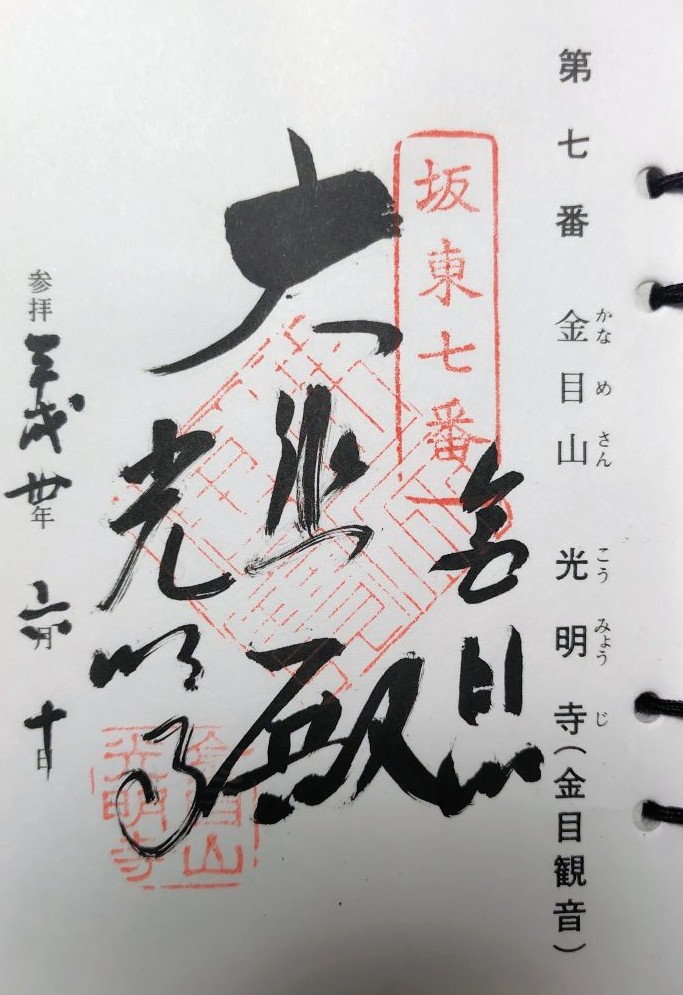 第七番 金目山 光明寺(金目観音)
かな め さん こう みょう じ
坂東七番
金目山
大悲殿
光明寺
参拝 平成卅年 六月 十日
金目山
光明寺